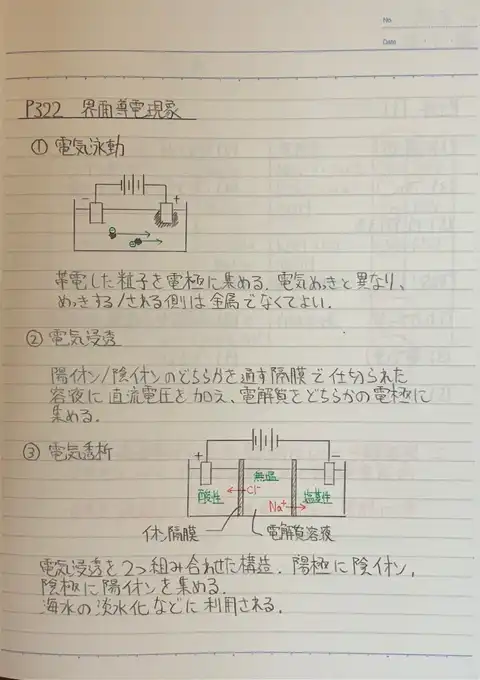 No.
Date
P322 界面導電現象
① 電気泳動
- +
帯電した粒子を電極に集める. 電気めっきと異なり、
めっきする/される側は金属でなくてよい.
② 電気浸透
陽イオン/陰イオンのどちらかを通す隔膜で仕切られた
溶液に直流電圧を加え、電解質をどちらかの電極に
集める.
③ 電気透析
+ -
無塩
酸性 Cl⁻ 塩基性
Na⁺
イオン隔膜 電解質溶液
電気浸透を2つ組み合わせた構造. 陽極に陰イオン,
陰極に陽イオンを集める.
海水の淡水化などに利用される.